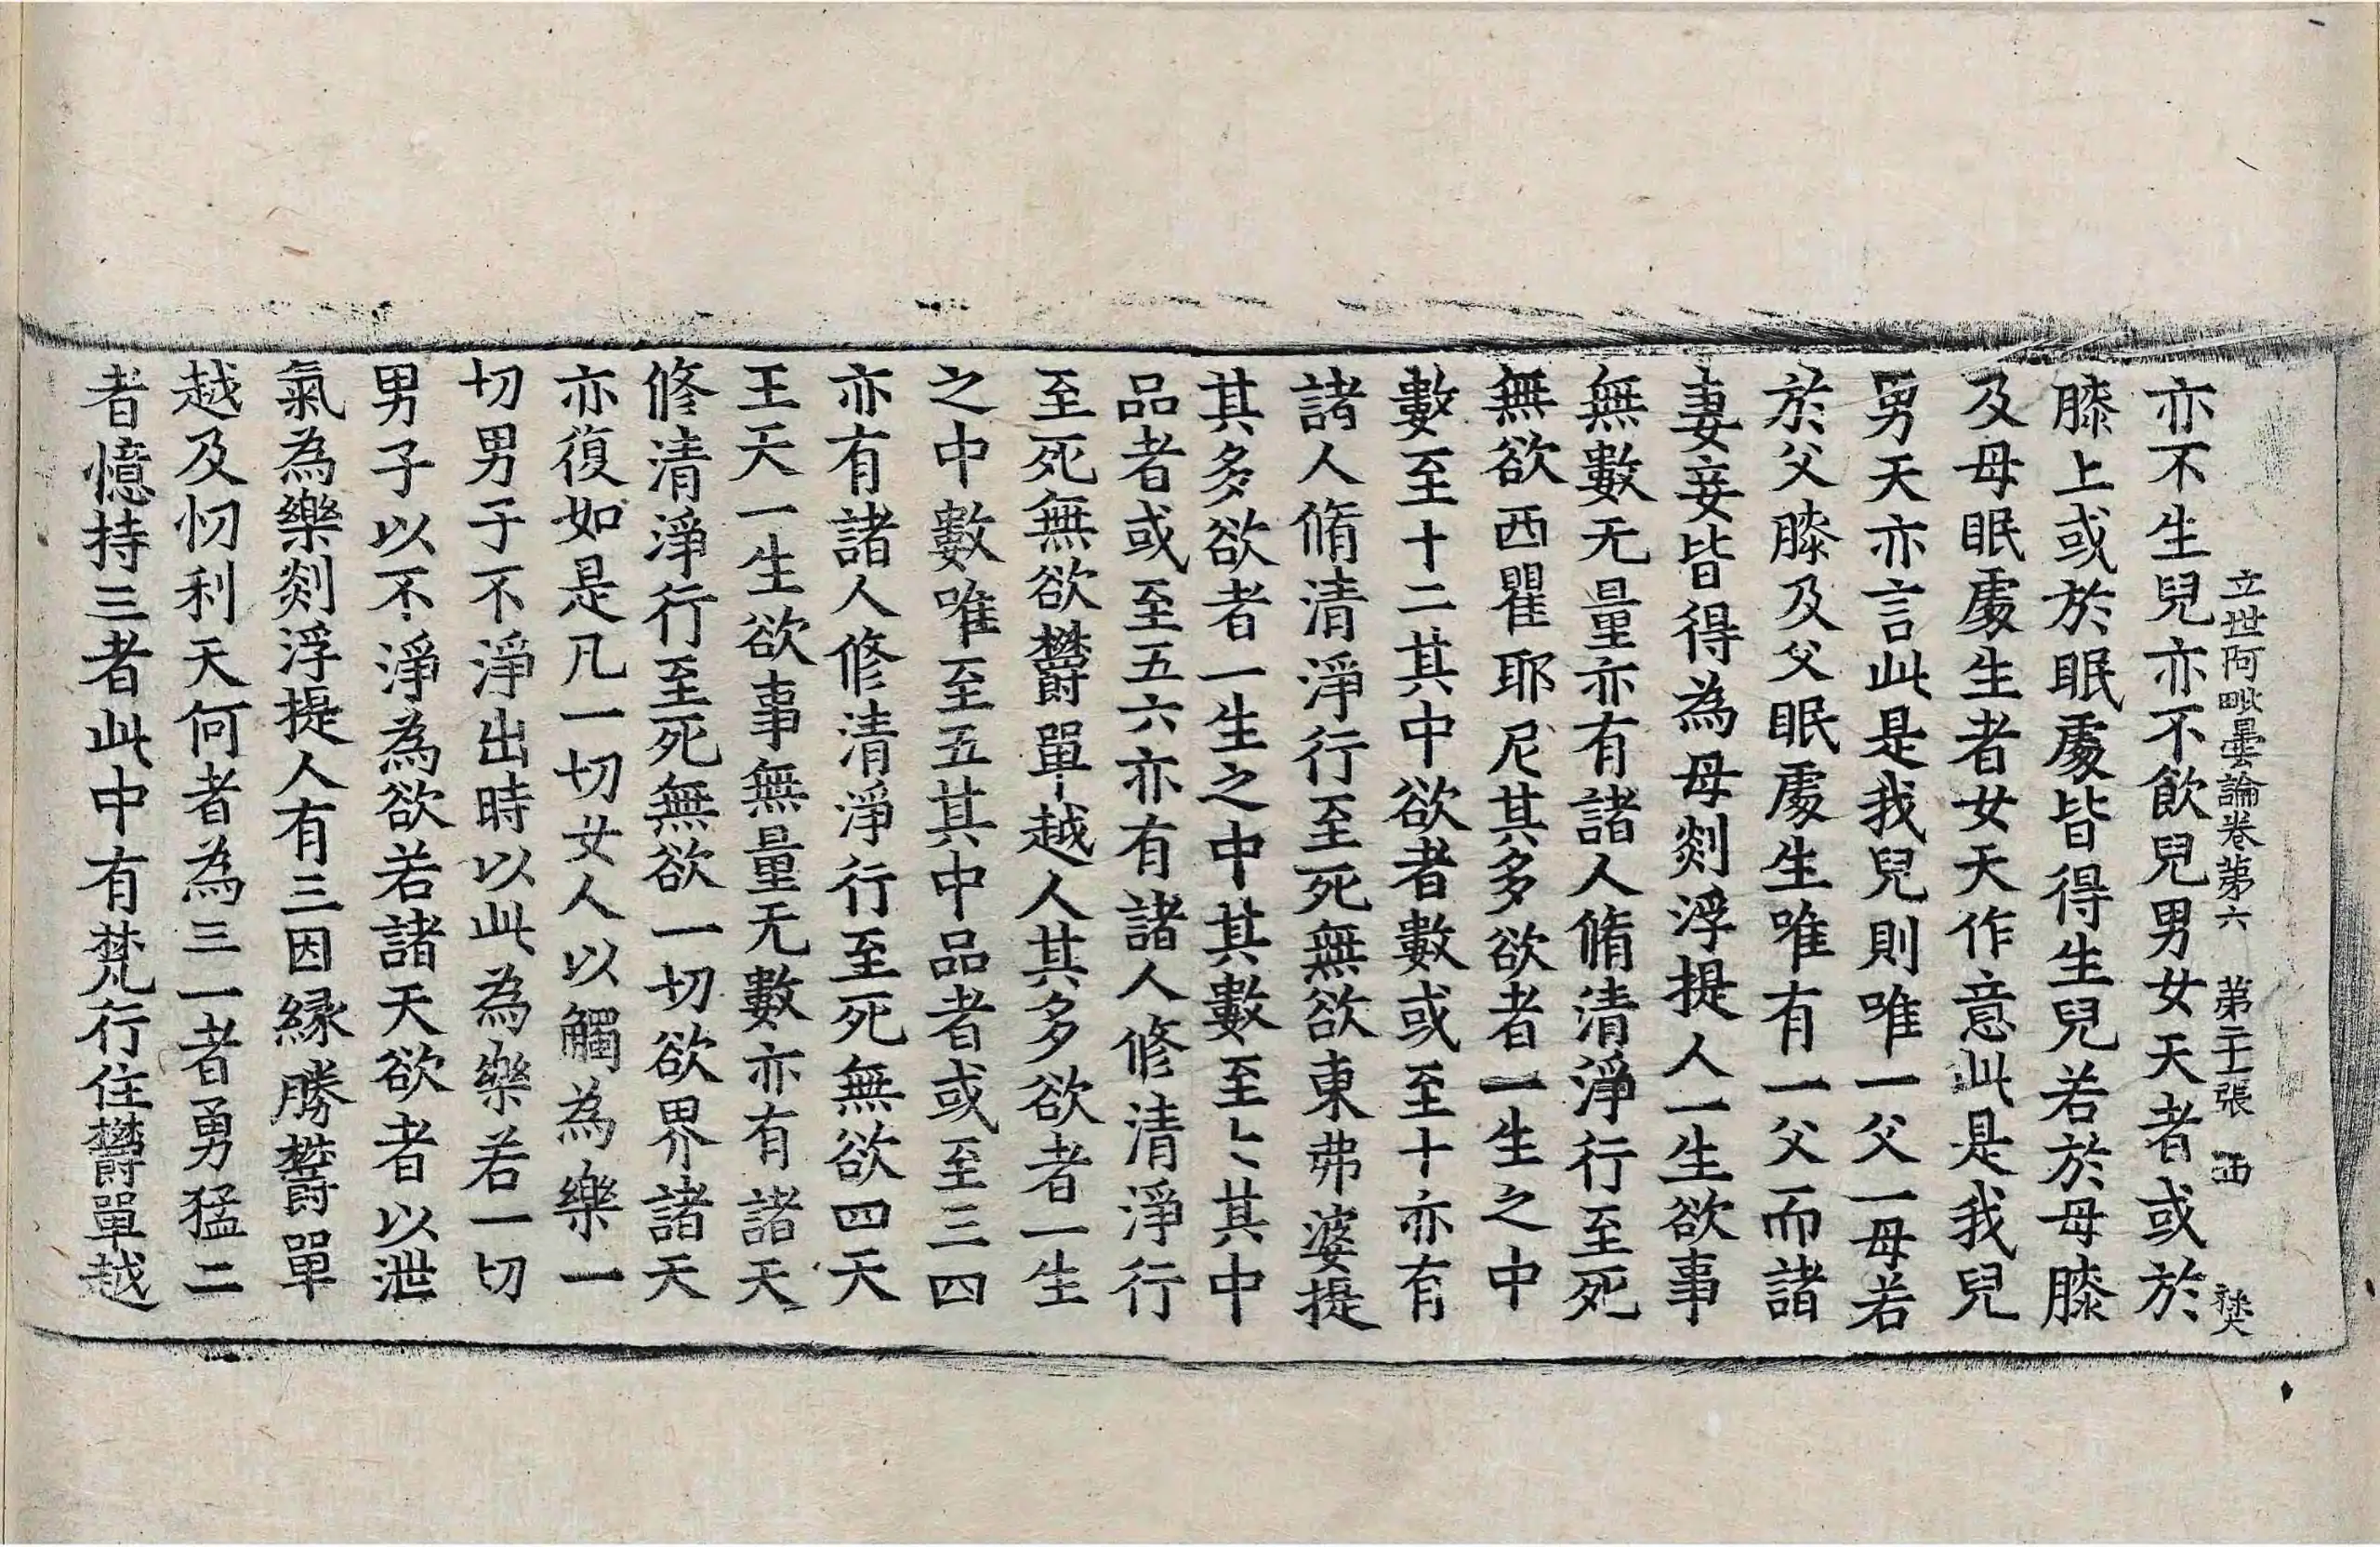 立世阿毗曇論卷第六 第二十張 西
亦不生兒亦不飲兒男女天者或於
膝上或於眠處皆得生兒若於母膝
及母眠處生者女天作意此是我兒
男天亦言此是我兒則唯一父一母若
於父膝及父眠處生唯有一父而諸
妻妾皆得為母剡浮提人一生欲事
無數无量亦有諸人脩清淨行至死
無欲西瞿耶尼其多欲者一生之中
數至十二其中欲者數或至十亦有
諸人脩清淨行至死無欲東弗婆提
其多欲者一生之中其數至七其中
品者或至五六亦有諸人修清淨行
至死無欲欝單越人其多欲者一生
之中數唯至五其中品者或至三四
亦有諸人修清淨行至死無欲四天
王天一生欲事無量无數亦有諸天
修清淨行至死無欲一切欲界諸天
亦復如是凡一切女人以觸為樂一
切男子不淨出時以此為樂若一切
男子以不淨為欲若諸天欲者以泄
氣為樂剡浮提人有三因緣勝欝單
越及忉利天何者為三一者勇猛二
者憶持三者此中有梵行住欝單越